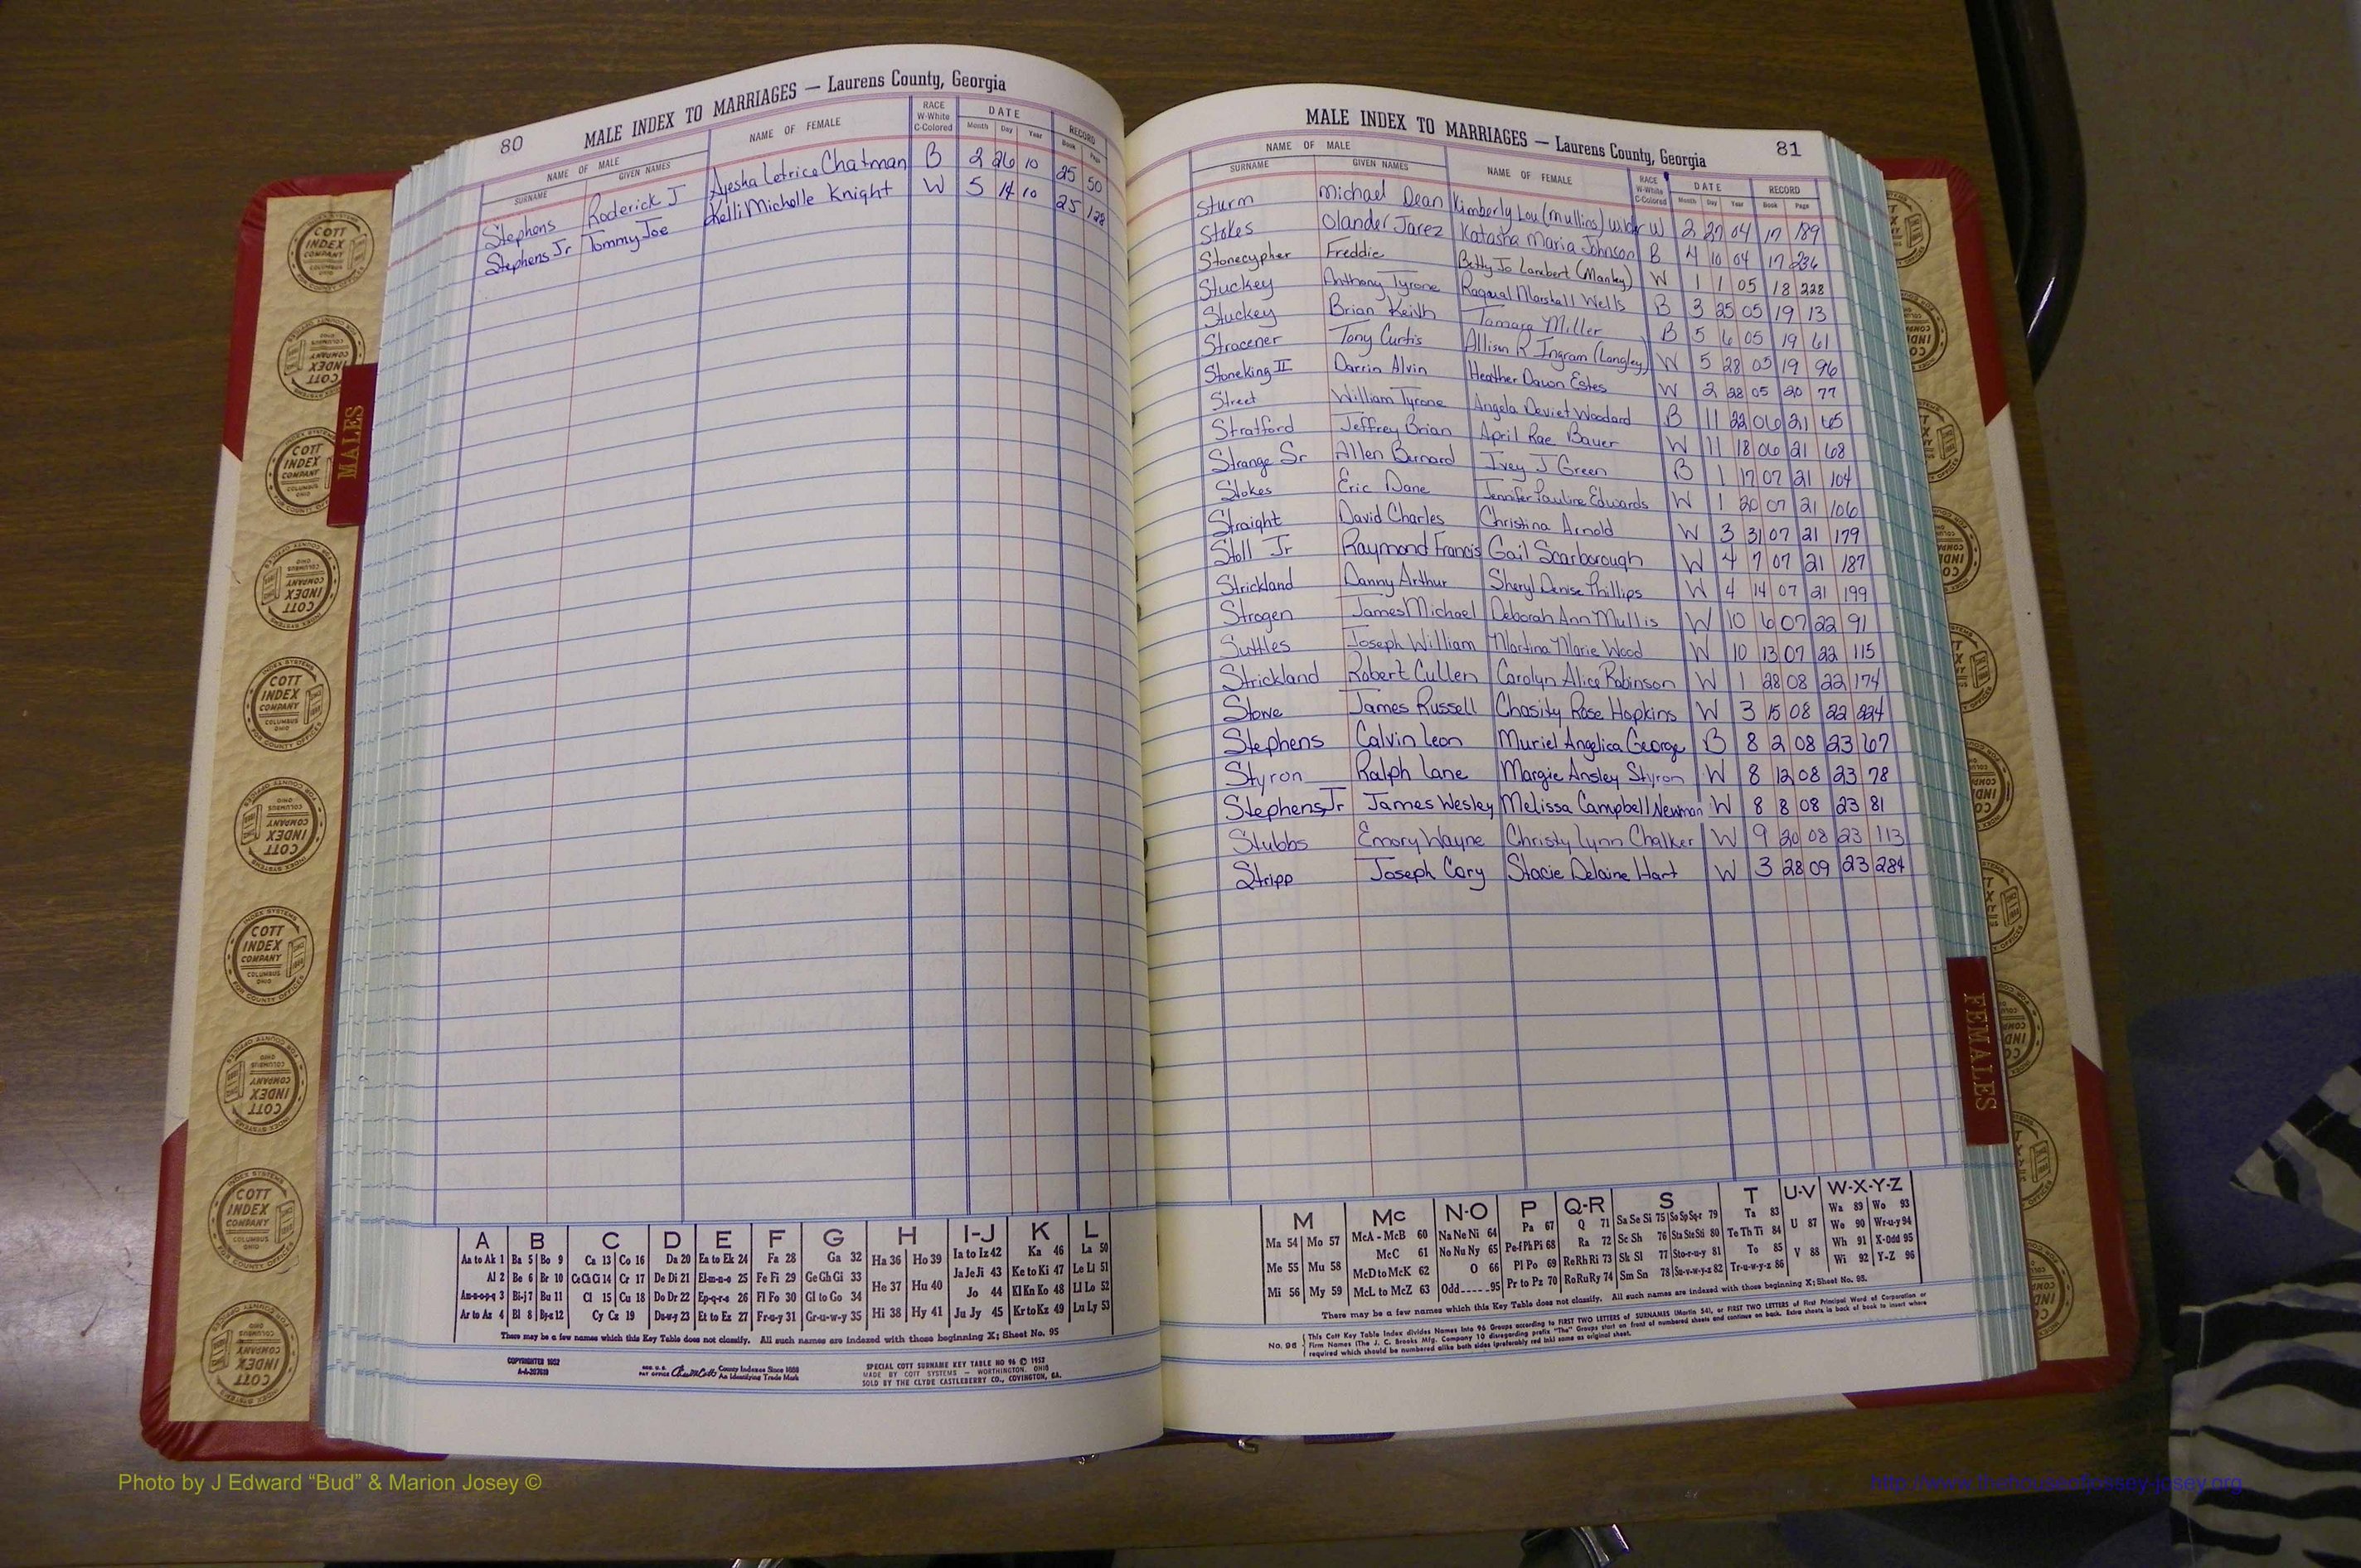 80
MALE INDEX TO MARRIAGES — Laurens County, Georgia
NAME OF MALE NAME OF FEMALE RACE W-White C-Colored DATE RECORD
SURNAME GIVEN NAMES Month Day Year Book Page
Stephens Roderick J Ayesha Letrice Chatman B 2 26 10 25 50
Stephens Jr Tommy Joe Kelli Michelle Knight W 5 14 10 25 128
A B C D E F G H I-J K L
Aa to Ak 1 Ba 5 Bo 9 Ca 13 Co 16 Da 20 Ea to Ek 24 Fa 28 Ga 32 Ha 36 Ho 39 Ia to Iz 42 Ka 46 La 50
Al 2 Be 6 Br 10 Ce Ch Ci 14 Cr 17 De Di 21 El-m-n-o 25 Fe Fi 29 Ge Gh Gi 33 He 37 Hu 40 Ja Je Ji 43 Ke to Ki 47 Le Li 51
Am-n-o-p-q 3 Bi-j 7 Bu 11 Cl 15 Cu 18 Do Dr 22 Ep-q-r-s 26 Fl Fo 30 Gl to Go 34 Hi 38 Hy 41 Jo 44 Kl Kn Ko 48 Ll Lo 52
Ar to Az 4 Bl 8 By-z 12 Cy Cz 19 Du-w-y 23 Et to Ez 27 Fr-u-y 31 Gr-u-w-y 35 Ju Jy 45 Kr to Kz 49 Lu Ly 53
There may be a few names which this Key Table does not classify. All such names are indexed with those beginning X; Sheet No. 95
COPYRIGHTED 1952
A-A-207610
REG. U.S. PAT OFFICE County Indexes Since 1888 An Identifying Trade Mark
SPECIAL COTT SURNAME KEY TABLE NO 96 © 1952
MADE BY COTT SYSTEMS — WORTHINGTON, OHIO
SOLD BY THE CLYDE CASTLEBERRY CO., COVINGTON, GA.
MALE INDEX TO MARRIAGES — Laurens County, Georgia
81
NAME OF MALE NAME OF FEMALE RACE W-White C-Colored DATE RECORD
SURNAME GIVEN NAMES Month Day Year Book Page
Sturm Michael Dean Kimberly Lou (Mullins) W 2 27 04 17 189
Stokes Olander Jarez Katasha Maria Johnson B 4 10 04 17 236
Stonecypher Freddie Betty Jo Lambert (Manley) W 1 1 05 18 228
Stuckey Anthony Tyrone Raquel Marshall Wells B 3 25 05 19 13
Stuckey Brian Keith Tamara Miller B 5 6 05 19 61
Stracener Tony Curtis Allison R Ingram (Langley) W 5 28 05 19 96
Stoneking II Darrin Alvin Heather Dawn Estes W 2 28 05 20 77
Street William Tyrone Angela Deviet Woodard B 11 22 06 21 65
Stratford Jeffrey Brian April Rae Bauer W 11 18 06 21 68
Strange Sr Allen Bernard Ivey J Green B 1 17 07 21 104
Stokes Eric Dane Jennifer Pauline Edwards W 1 20 07 21 106
Straight David Charles Christina Arnold W 3 31 07 21 179
Stoll Jr Raymond Francis Gail Scarborough W 4 7 07 21 187
Strickland Danny Arthur Sheryl Denise Phillips W 4 14 07 21 199
Strogen James Michael Deborah Ann Mullis W 10 6 07 22 91
Suttles Joseph William Martina Marie Wood W 10 13 07 22 115
Strickland Robert Cullen Carolyn Alice Robinson W 1 28 08 22 174
Stowe James Russell Chasity Rose Hopkins W 3 15 08 22 224
Stephens Calvin Leon Muriel Angelica George B 8 2 08 23 67
Styron Ralph Lane Margie Ansley Styron W 8 12 08 23 78
Stephens, Jr James Wesley Melissa Campbell Newman W 8 8 08 23 81
Stubbs Emory Wayne Christy Lynn Chalker W 9 20 08 23 113
Stripp Joseph Cary Stacie Delaine Hart W 3 28 09 23 284
M Mc N-O P Q-R S T U-V W-X-Y-Z
Ma 54 Mo 57 McA - McB 60 Na Ne Ni 64 Pa 67 Q 71 Sa Se Si 75 So Sp Sq-r 79 Ta 83 U 87 Wa 89 Wo 93
Me 55 Mu 58 McC 61 No Nu Ny 65 Pe-f Ph Pi 68 Ra 72 Sc Sh 76 Sta Ste Sti 80 Te Th Ti 84 V 88 We 90 Wr-u-y 94
Mi 56 My 59 McD to McK 62 O 66 Pl Po 69 Re Rh Ri 73 Sk Sl 77 Sto-r-u-y 81 To 85 Wh 91 X-Odd 95
McL to McZ 63 Odd 95 Pr to Pz 70 Ro Ru Ry 74 Sm Sn 78 Su-v-w-y-z 82 Tr-u-w-y-z 86 Wi 92 Y-Z 96
There may be a few names which this Key Table does not classify. All such names are indexed with those beginning X; Sheet No. 95.
No. 96 This Cott Key Table Index divides Names into 96 Groups according to FIRST TWO LETTERS of SURNAMES (Martin 54), or FIRST TWO LETTERS of First Principal Word of Corporation or
Firm Names (The J. C. Brooks Mfg. Company 10 disregarding prefix "The" Groups start on front of numbered sheets and continue on back. Extra sheets in back of book to insert where
required which should be numbered alike both sides (preferably red ink) same as original sheet.
MALES
FEMALES
COTT INDEX COMPANY
COLUMBUS OHIO
INDEX SYSTEMS FOR COUNTY OFFICES
Photo by J Edward “Bud” & Marion Josey ©
http://www.thehouseofjossey-josey.org